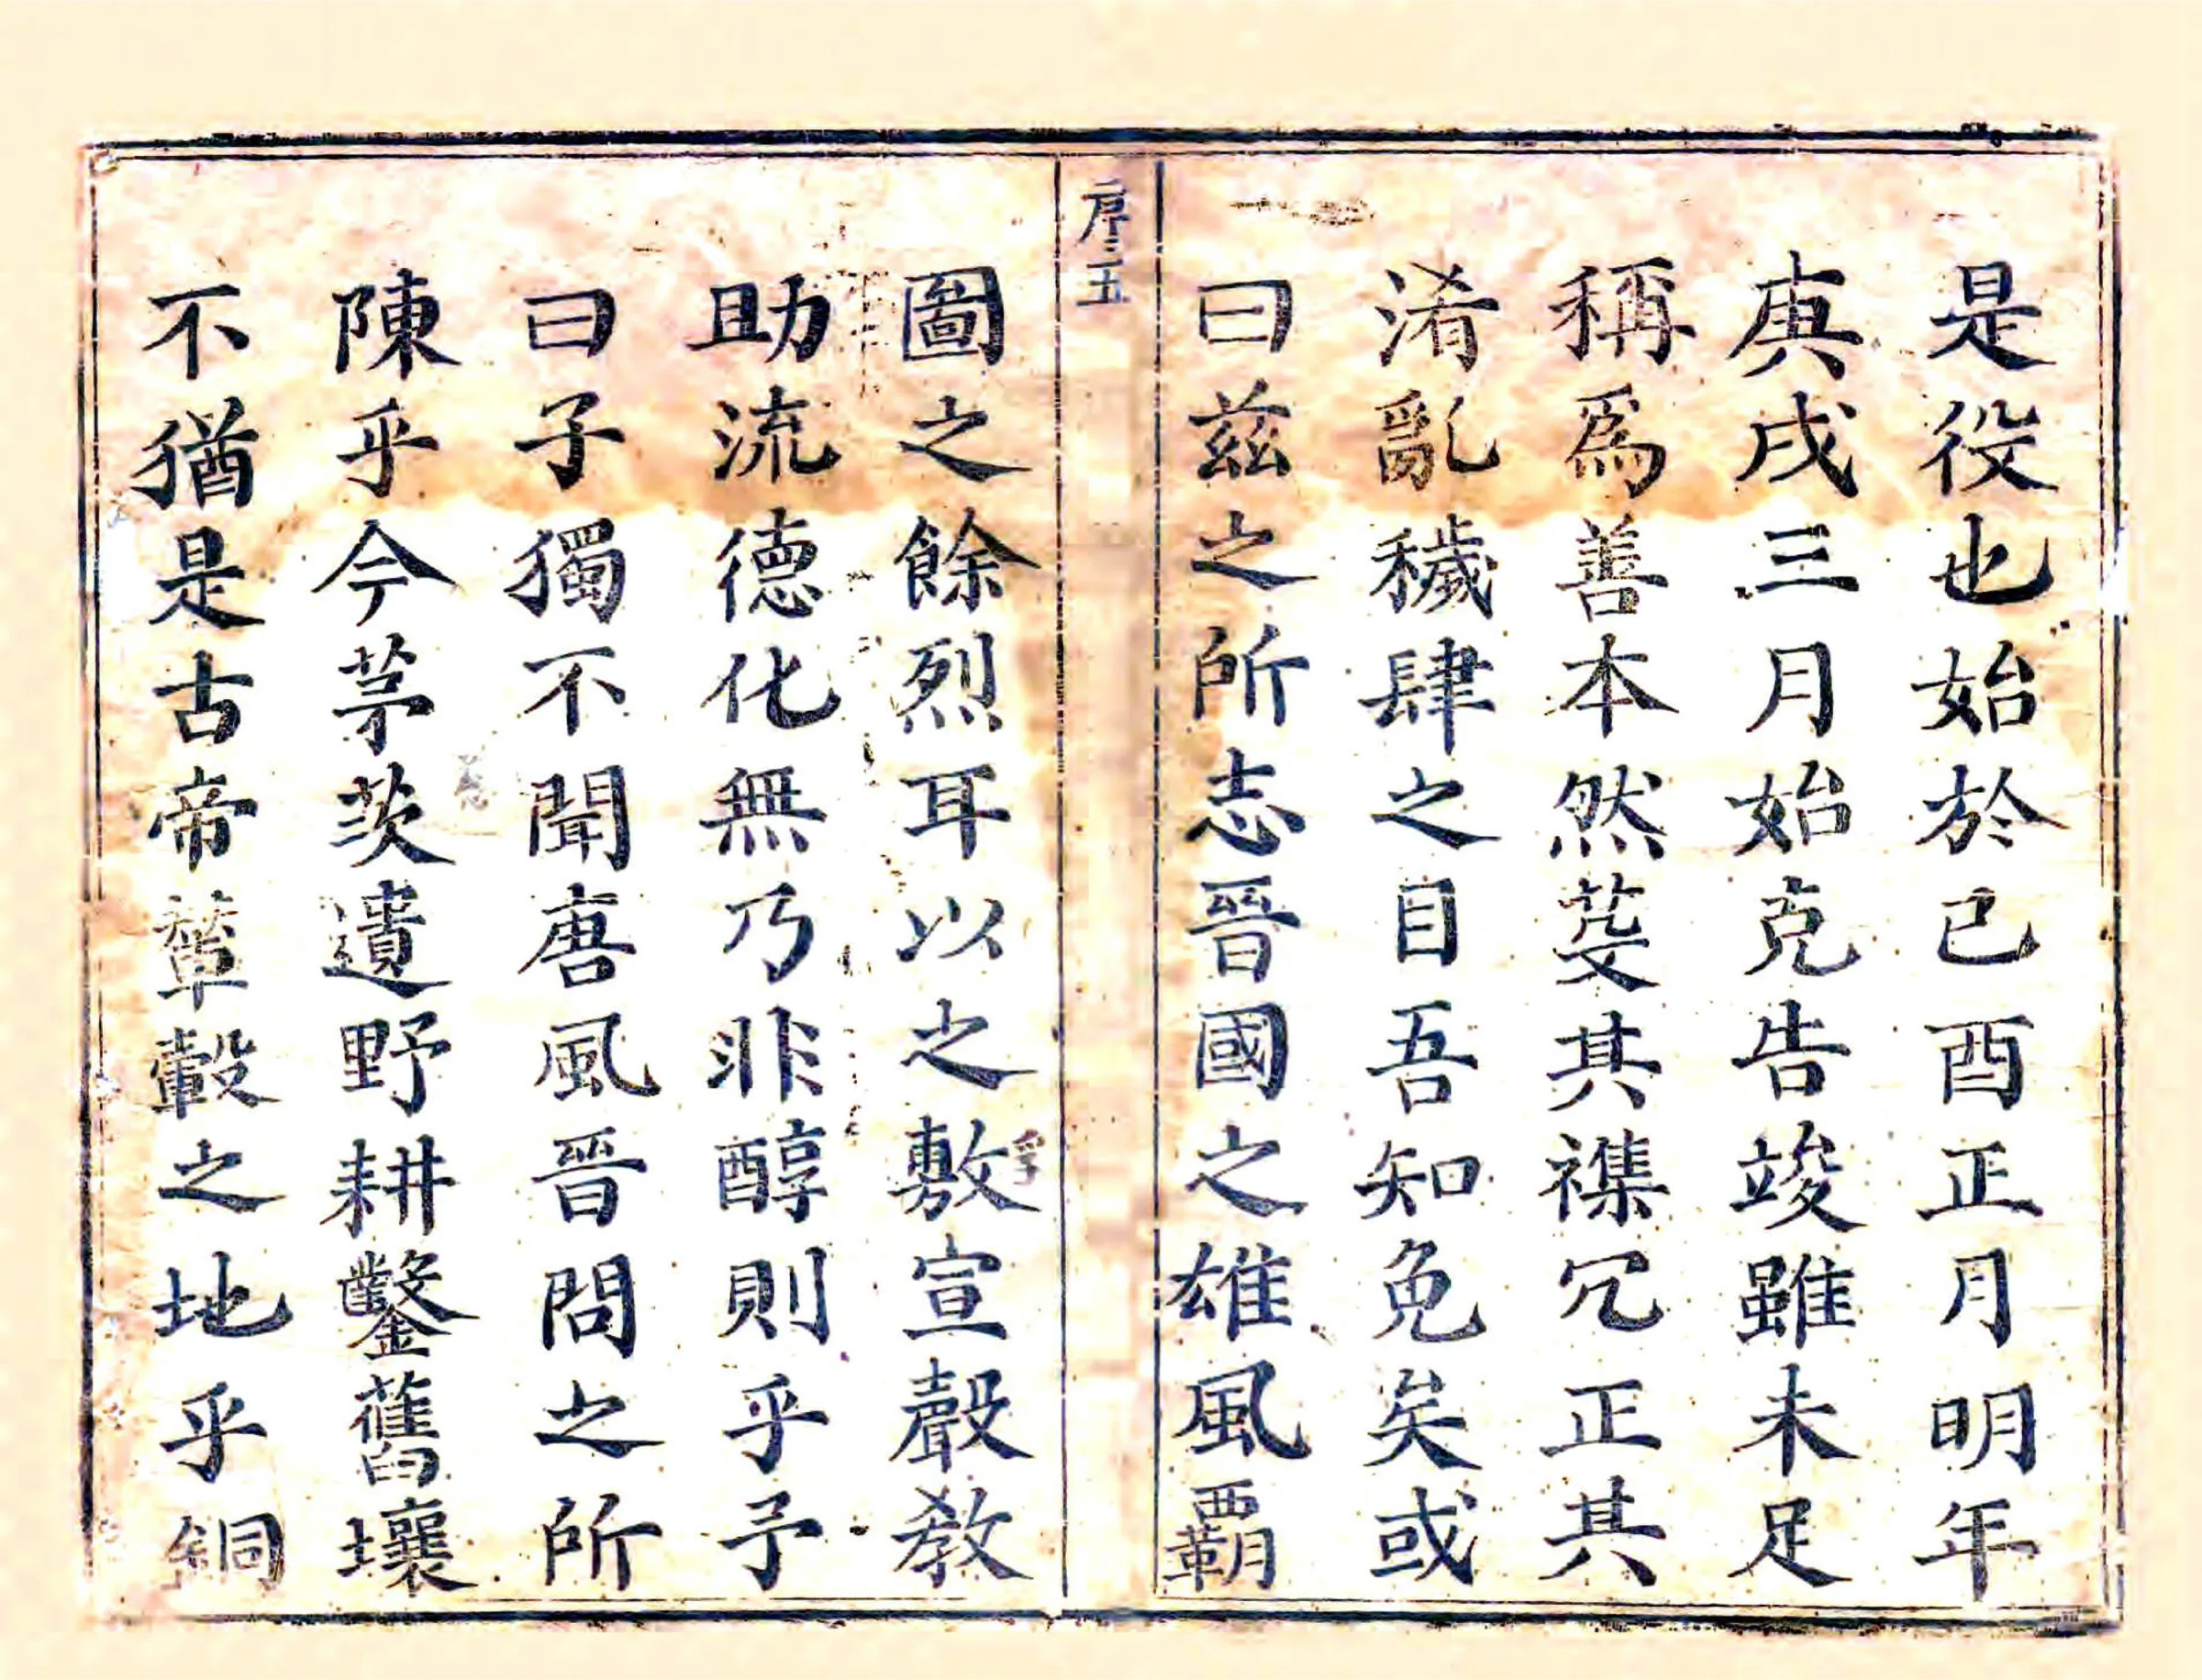 是役也始於已酉正月明年
庚戌三月始克告竣雖未足
稱爲善本然芟其襍冗正其
淆亂穢肆之目吾知免矣或
曰茲之所志晉國之雄風覇
序五
圖之餘烈耳以之敷宣聲教
助流德化無乃非醇則乎予
曰子獨不聞唐風晉問之所
陳乎今茅茨遺野耕鑿舊壤
不猶是古帝輦轂之地乎銅